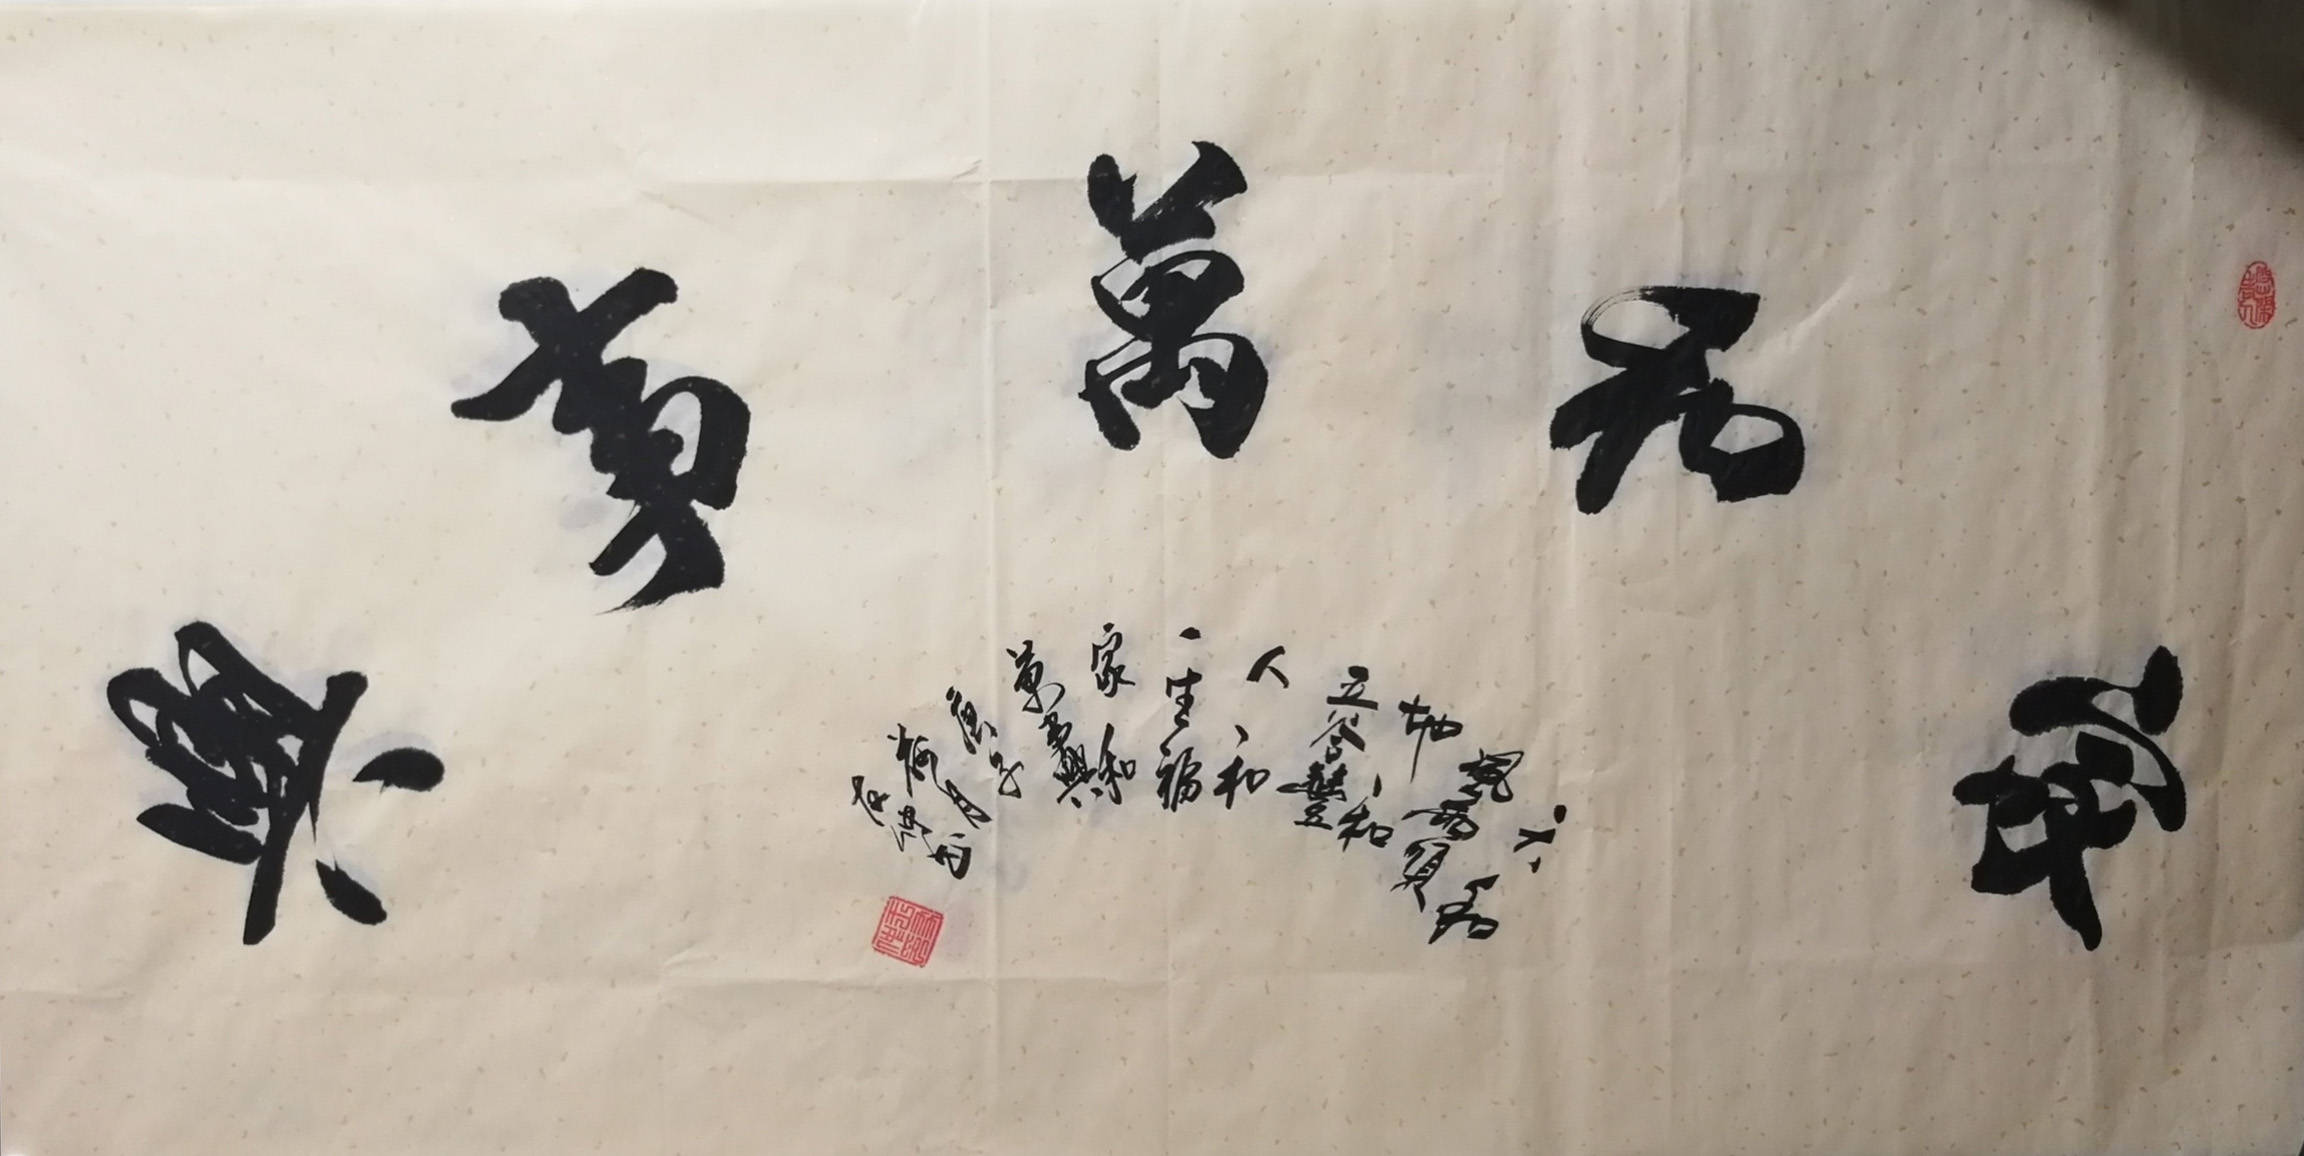 家和萬事興
天和
風雨順
地和
五谷豐
人和
一生福
家和
萬事興
庚子